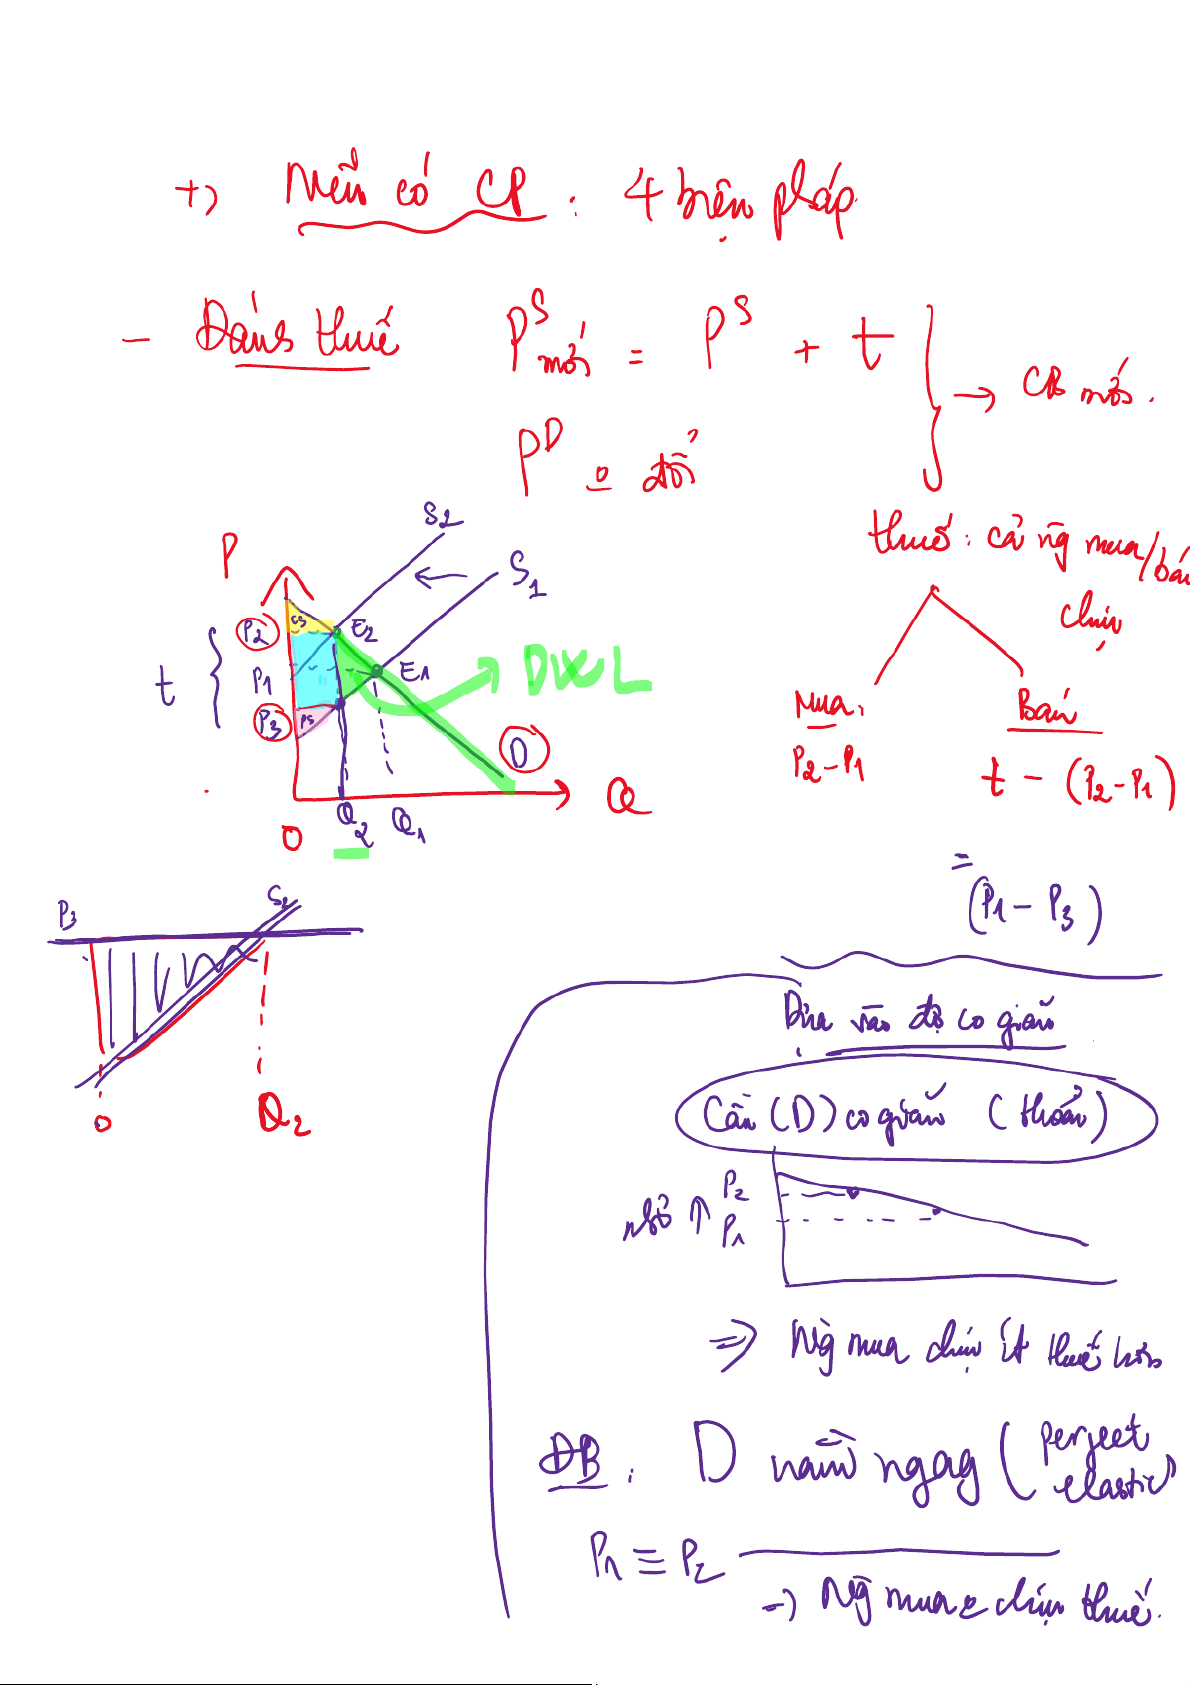 +) Nếu có CP : 4 biện pháp
- Đánh thuế P^S mới = P^S + t
P^D o đổi
→ CB mới.
thuế : cả ng mua/bán
chịu
Mua: Bán
P2-P1 t - (P2-P1)
=
(P1 - P3)
P S2 S1
P2 CS E2
t P1 E1 DWL
P3 PS D
O Q2 Q1 Q
P3 S2
O Q2
Dựa vào độ co giãn
Cầu (D) co giãn (thoải)
nhỏ ↑ P2
P1
=> Ng mua chịu ít thuế hơn
ĐB : D nằm ngag (perject
elastic)
P1 ≡ P2
-> Ng mua o chịu thuế.